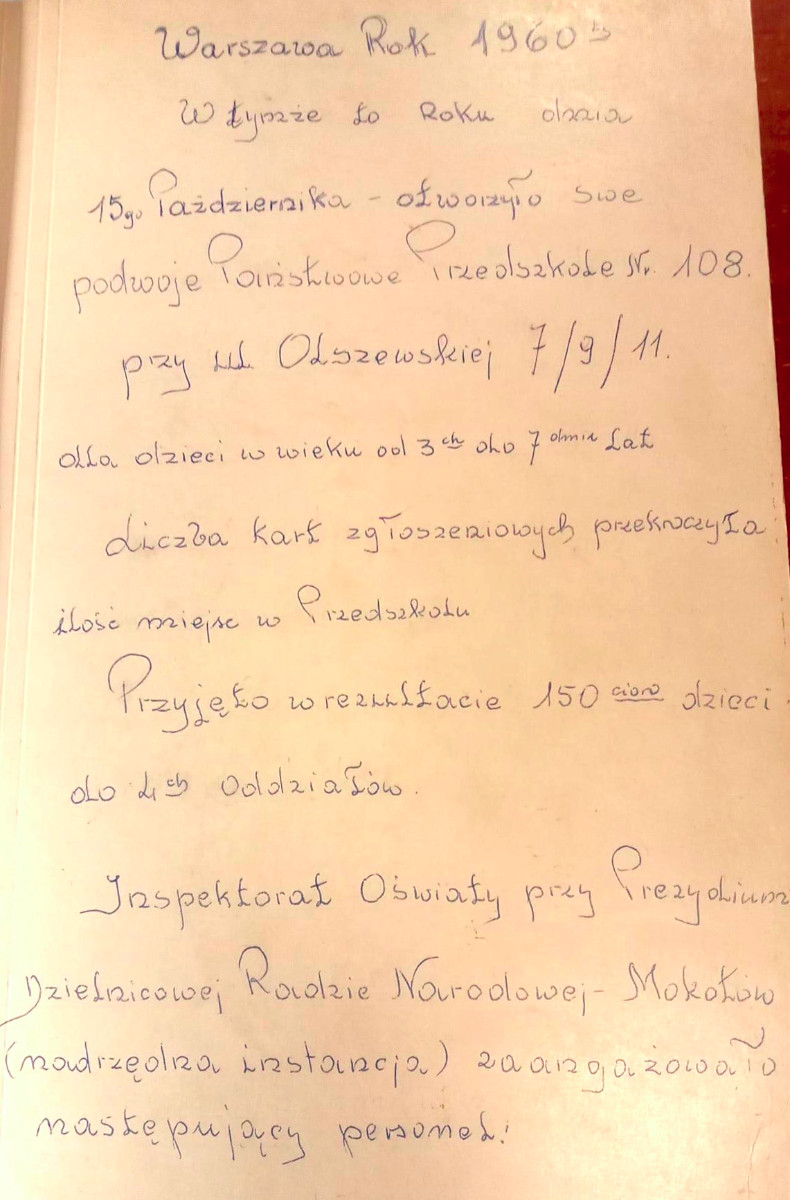 Warszawa Rok 1960ty
W tymże to Roku dnia
15go Października - otworzyło swe
podwoje Państwowe Przedszkole Nr. 108.
przy ul. Olszewskiej 7/9/11.
dla dzieci w wieku od 3ch do 7dmiu lat
Liczba kart zgłoszeniowych przekroczyła
ilość miejsc w Przedszkolu
Przyjęto w rezultacie 150cioro dzieci
do 4ch Oddziałów.
Inspektorat Oświaty przy Prezydium
Dzielnicowej Radzie Narodowej - Mokotów
(nadrzędna instancja) zaangażowało
następujący personel: